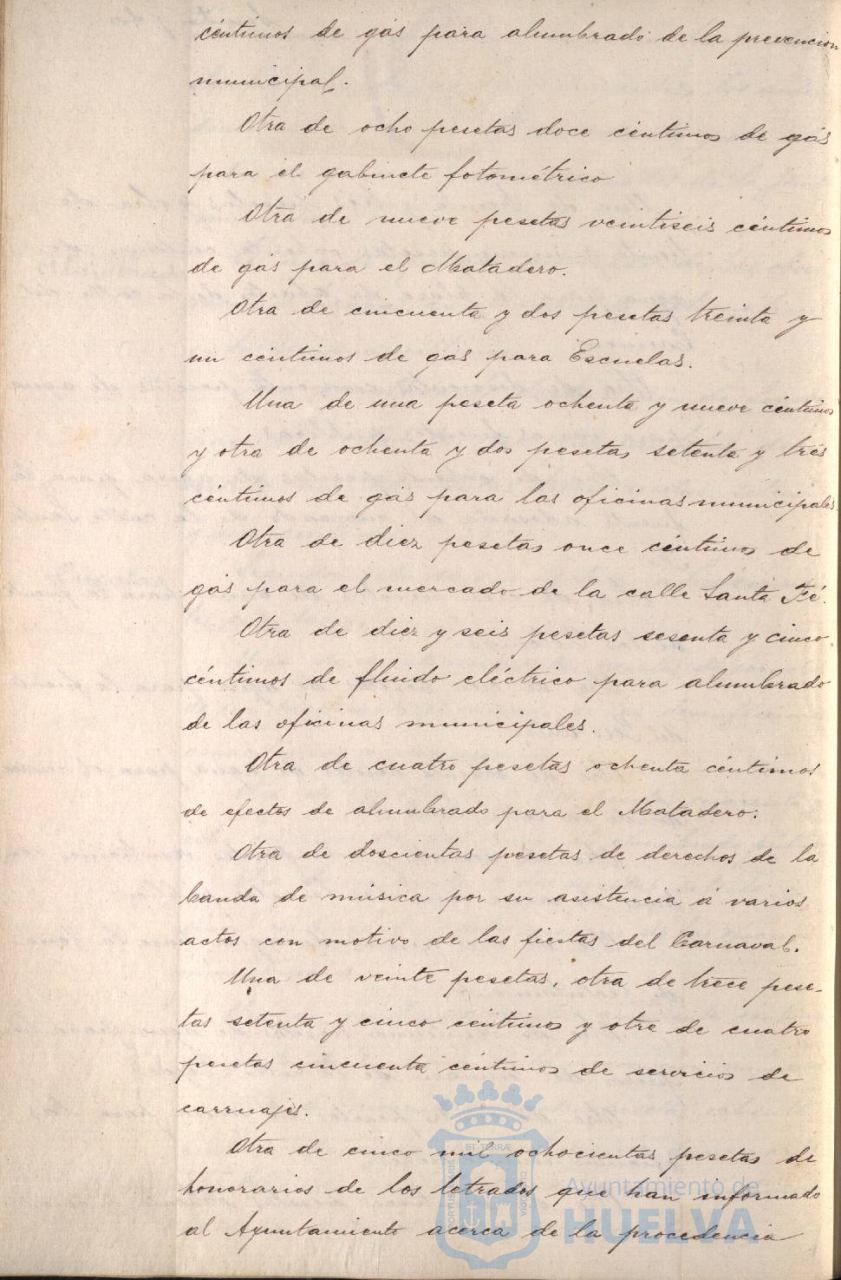 céntimos de gás para alumbrado de la prevencion
municipal.
Otra de ocho pesetas doce céntimos de gás
para el gabinete fotométrico
Otra de nueve pesetas veintiseis céntimos
de gás para el Matadero.
Otra de cincuenta y dos pesetas treinta y
un céntimos de gas para Escuelas.
Una de una peseta ochenta y nueve céntimos
y otra de ochenta y dos pesetas setenta y tres
céntimos de gás para las oficinas municipales.
Otra de diez pesetas once céntimos de
gás para el mercado de la calle Santa Fé.
Otra de diez y seis pesetas sesenta y cinco
céntimos de fluido eléctrico para alumbrado
de las oficinas municipales.
Otra de cuatro pesetas ochenta céntimos
de efectos de alumbrado para el Matadero.
Otra de doscientas pesetas de derechos de la
banda de música por su asistencia á varios
actos con motivo de las fiestas del Carnaval.
Una de veinte pesetas, otra de trece pese-
tas setenta y cinco céntimos y otra de cuatro
pesetas cincuenta céntimos de servicios de
carruajes.
Otra de cinco mil ochocientas pesetas de
honorarios de los letrados que han informado
al Ayuntamiento acerca de la procedencia
Ayuntamiento de
HUELVA